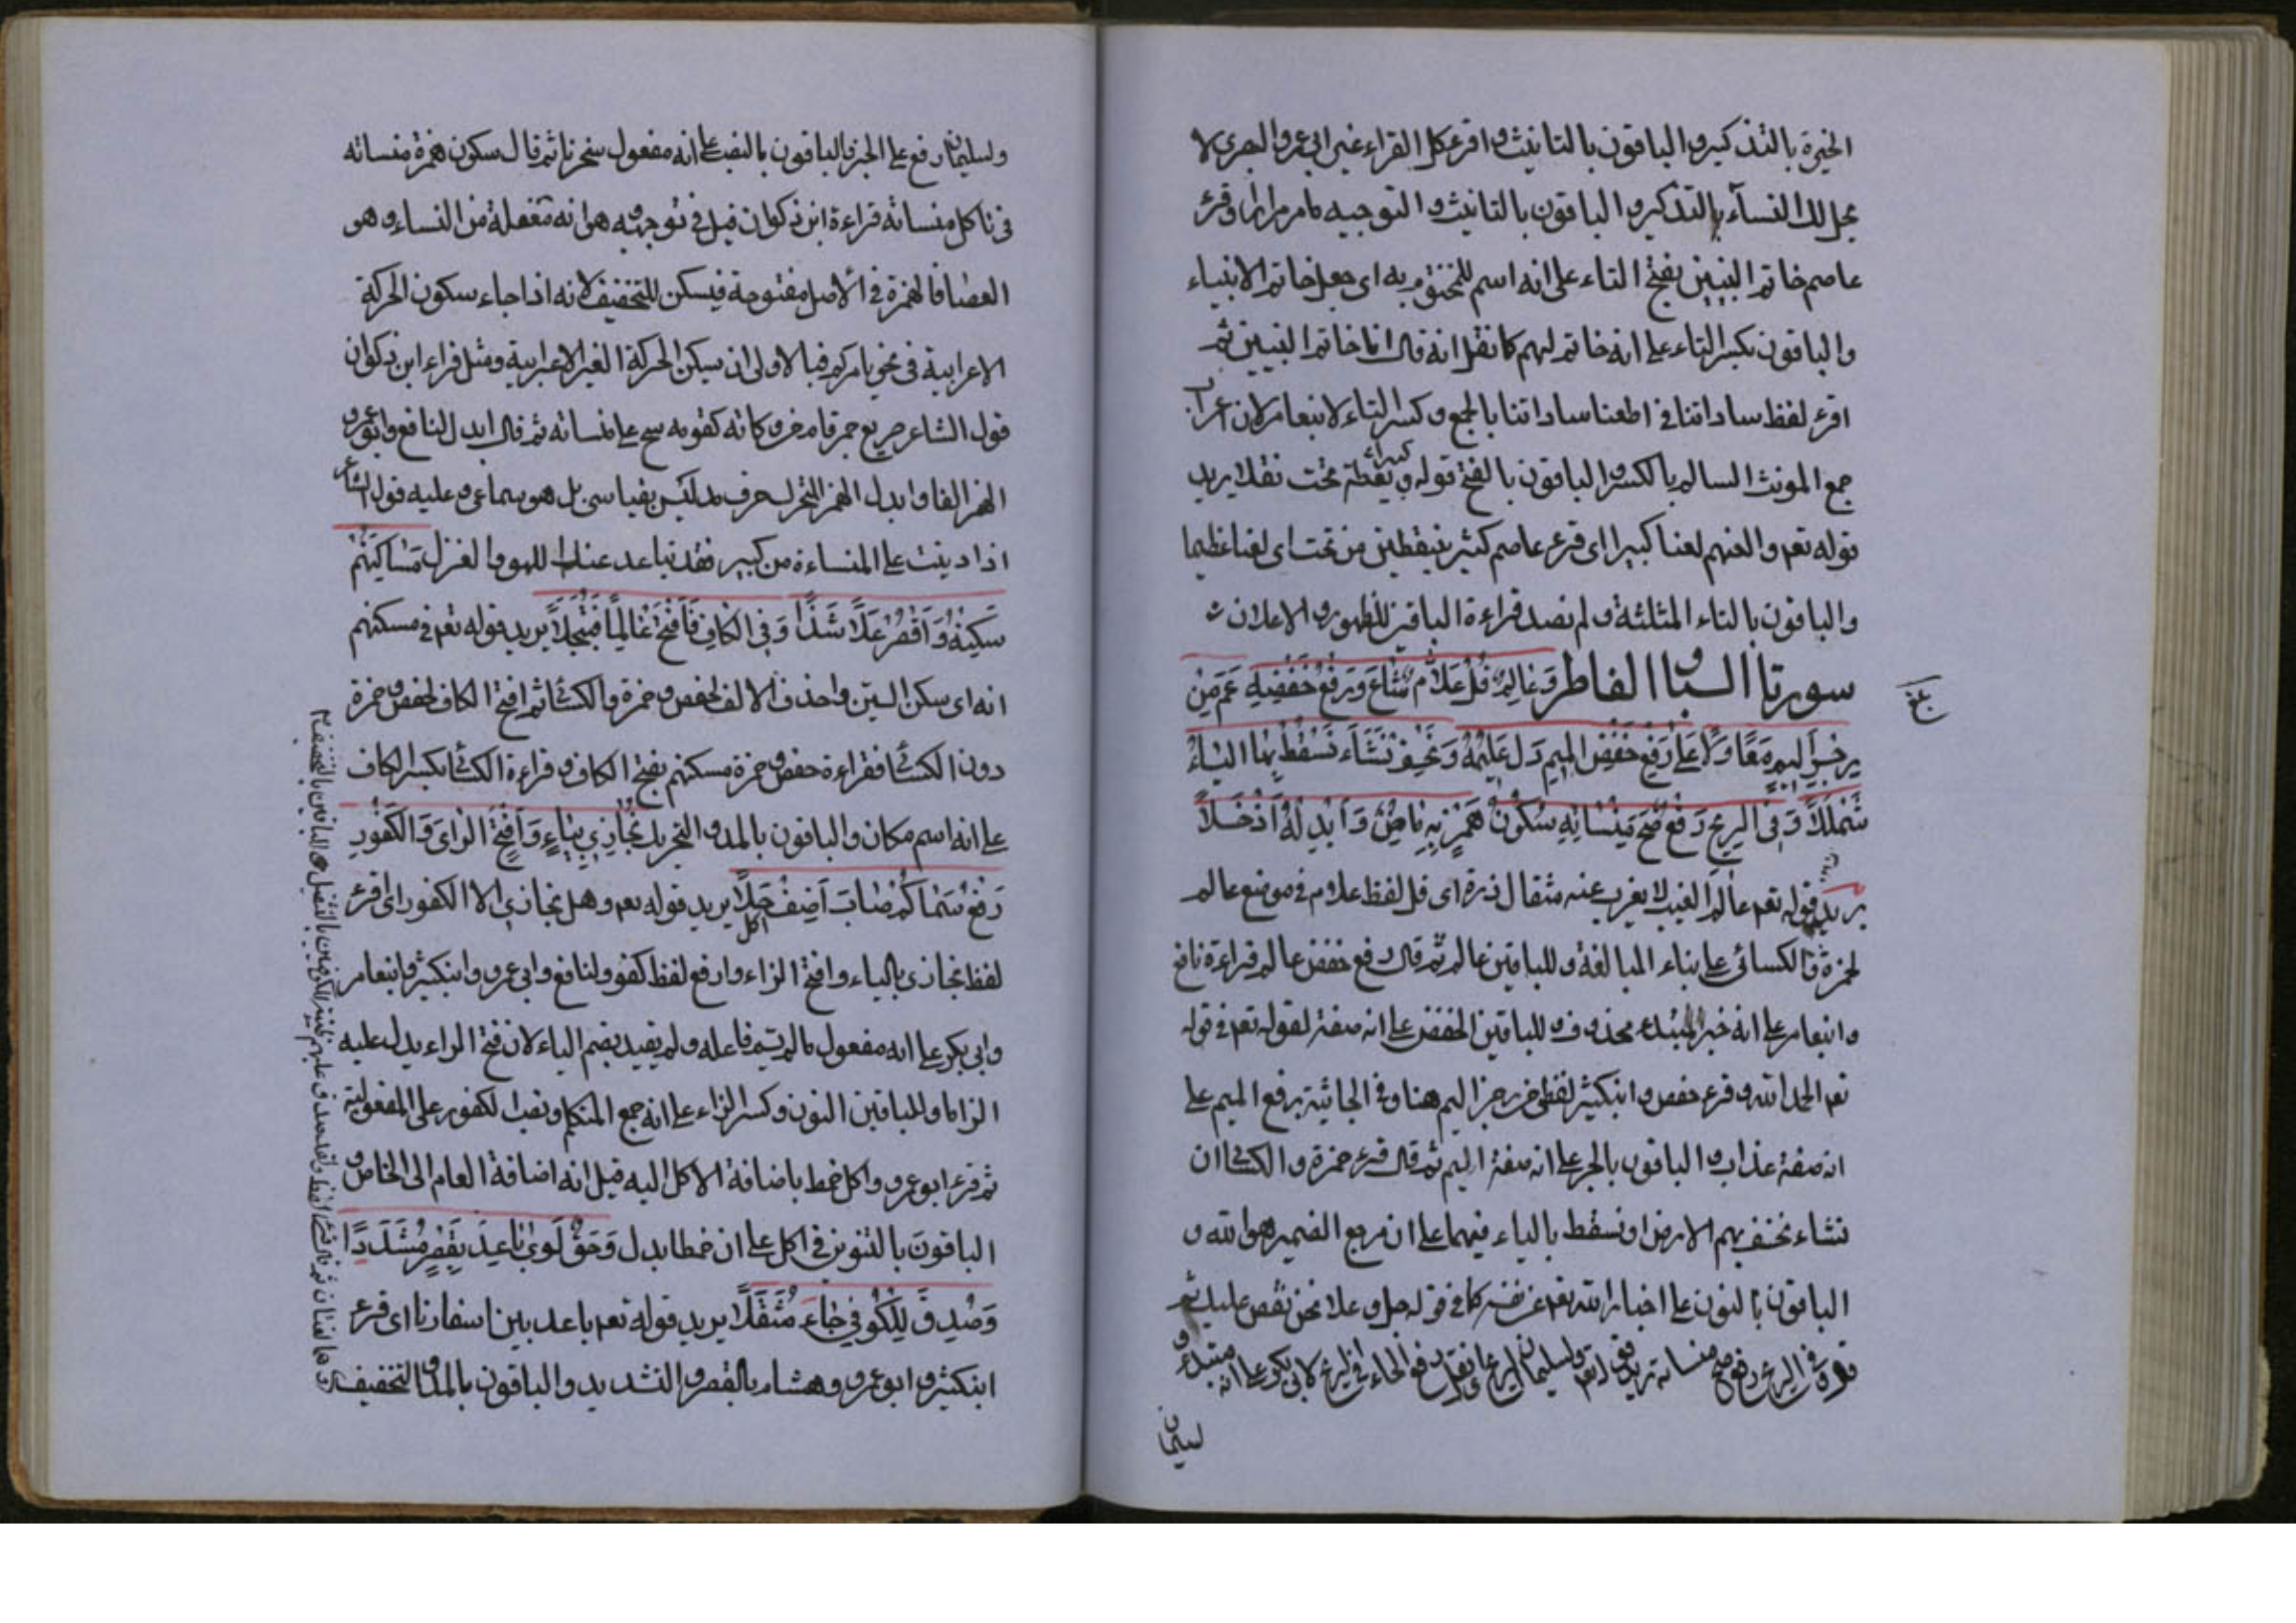 الخيرة بالتذكير والباقون بالتانيث واقرء كل القراء غير ابى عمرو البصرى لا
يحل لك النسآء بالتذكير والباقون بالتانيث والتوجيه كما مر مرارا وقرء
عاصم خاتم النبيين بفتح التاء على انه اسم للمختوم به اى جعل خاتم الانبياء
والباقون بكسر التاء على انه خاتم لهم كما نقل انه قال انا خاتم النبيين ثم
اقرء لفظ ساداتنا فى اطعنا ساداتنا بالجمع وكسر التاء لابنعامر لان اعراب
جمع المونث السالم بالكسر والباقون بالفتح قوله و كثيرا نقطة تحت نقلا يريد
قوله تعم والعنهم لعنا كبيرا اى قرء عاصم كثير بنقطتين من تحت اى لعنا عظيما
والباقون بالتاء المثلثة ولم نصد قراءة الباقين للظهور والاعلان
سورتا السبا والفاطر وَعَالِمِ قُلْ عَلَّامِ شَاعَ وَرَفْعُ خَفْضِهِ عَمَّ مِنْ
رِجْزٍ اَلِيمٍ مَعًا وِلَا عَلَى رَفْعِ خَفْضِ الْمِيمِ دَلَّ عَلِيمُهُ وَنَخْسِفْ نَشَأْ نُسْقِطْ بِهَا الْيَاءُ
شَمْلَلَا وَفِى الرِّيحِ رَفْعٌ صَحَّ مِنْسَأَتِهْ سُكُونُ هَمْزَتِهِ مَاضٍ وَأَبْدِلْهُ اِذْ حَلَا
يريد قوله تعم عالم الغيب لا يعزب عنه مثقال ذرة اى قل لفظ علام فى موضع عالم
لحمزة والكسائى على بناء المبالغة وللباقين عالم ثم قال رفع خفض عالم قراءة نافع
وابنعامر على انه خبر المبتدء محذوف وللباقين الخفض على انه صفة لقوله تعم فى قوله
تعم الحمد لله وقرء حفص وابنكثير لفظى من رجز اليم هنا وفى الجاثية برفع الميم على
انه صفة عذاب والباقون بالجر على انه صفة اليم ثم قال قرء حمزة والكسائى ان
نشاء نخسف بهم الارض او نسقط بالياء فيهما على ان مرجع الضمير هو الله و
الباقون بالنون على اخبار الله تعم عن نفسه كما فى قوله جل وعلا نحن نقص عليك ثم
قوله وفى الريح رفع صح منساته يريد قوله تعم ولسليمان الريح اى نقل رفع الحاء فى الريح لابى بكر على انه مبتدء و
لسليمان
ولسليمان رفع على الخبر والباقون بالنصب على انه مفعول سخرنا ثم قال سكون همزة منساته
فى تاكل منساته قراءة ابن ذكوان قيل فى توجيهه هو انه مفعلة من النساء وهو
العصا فالهمزة فى الاصل مفتوحة فيسكن للتخفيف لانه اذا جاء سكون الحركة
الاعرابية فى نحو يامركم فبالاولى ان يسكن الحركة الغير الاعرابية ومثل قراءة ابن ذكوان
قول الشاعر صريع خمر قام من وكاته كقومه سح على منساته ثم قال ابدل لنافع وابو عمرو
الهمز الفا وابدل الهمز المتحرك حرف مد ليس بقياسى بل هو سماعى وعليه قول الشاعر
اذا دببت على المنساءة من كبير فقد تباعد عنك اللهو والغزل مَسَاكِنِهِمْ
سَكِّنْهُ وَاقْصُرْ عَلَى شَذًا وَفِى الْكَافِ فَافْتَحْ عَالِمًا فَتُبَجَّلَا يريد قوله تعم فى مسكنهم
انه اى سكن السين واحذف الالف لحفص وحمزة والكسائى ثم افتح الكاف لحفص وحمزة
دون الكسائى فقراءة حفص وحمزة مسكنهم بفتح الكاف وقراءة الكسائى بكسر الكاف
على انه اسم مكان والباقون بالمد والتحريك نُجَازِى بِيَاءٍ وَافْتَحِ الزَّاىَ وَالْكَفُورَ
رَفْعٌ سَمَا كَمْ صَابَ أُكْلٍ أَضِفْ حُلَا يريد قوله تعم وهل نجازى الا الكفور اى اقرء
لفظ نجازى بالياء وافتح الزاء وارفع لفظ كفور لنافع وابى عمرو وابنكثير وابنعامر
وابى بكر على انه مفعول ما لم يسم فاعله ولم يقيد بضم الياء لان فتح الزاء يدل عليه
التزاما وللباقين النون وكسر الزاء على انه جمع المتكلم ونصب الكفور على المفعولية
ثم قرء ابو عمرو اكل خمط باضافة الاكل اليه قيل انه اضافة العام الى الخاص و
الباقون بالتنوين فى اكل على ان خمطا بدل وَحَقُّ لِوَى بَاعِدْ بِقَصْرٍ مُشَدَّدًا
وَصُدِّقَ لِلْكُوفِى جَاءَ مُثَقَّلَا يريد قوله تعم باعد بين اسفارنا اى قرء
ابنكثير وابو عمرو وهشام بالقصر والتشديد والباقون بالمد والتخفيف